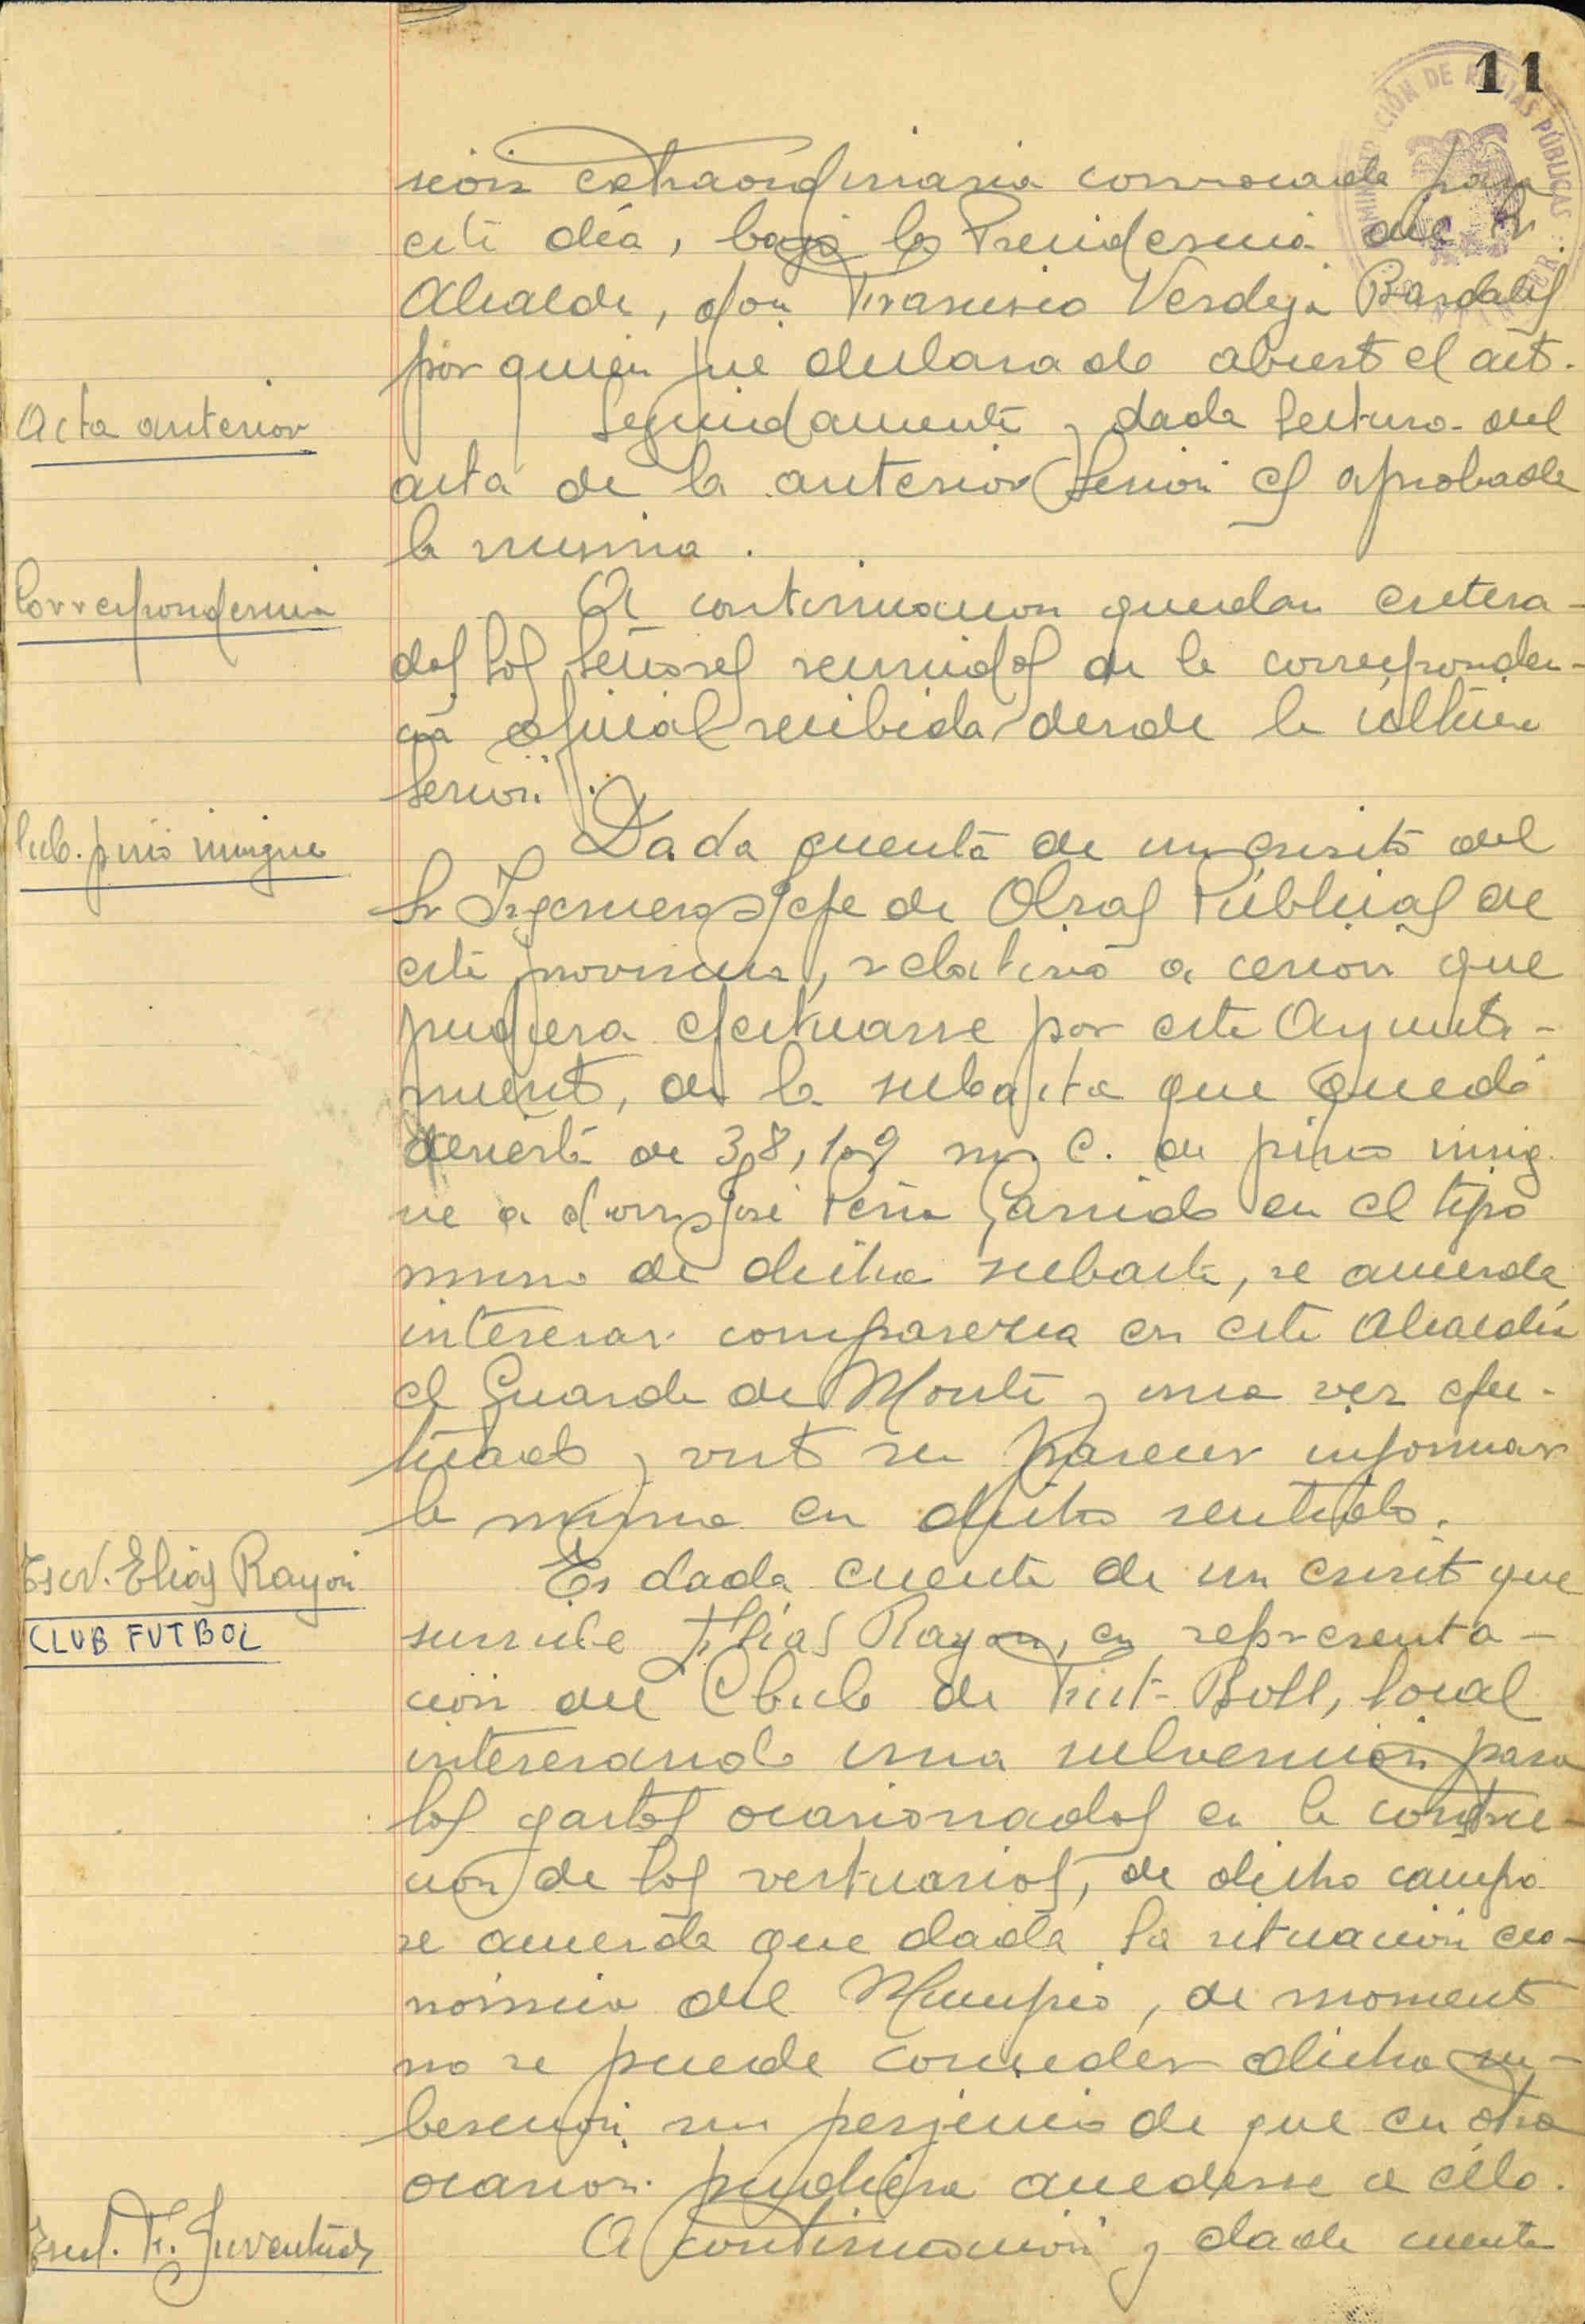 11
ADMINISTRACIÓN DE RENTAS PÚBLICAS
sión extraordinaria convocada para
este día, bajo la Presidencia del Sr.
Alcalde, don Francisco Verdeja Bardales
por quien fue declarado abierto el acto.
Acta anterior
Seguidamente y dada lectura del
acta de la anterior Sesion es aprobada
la misma.
Correspondencia
A continuacion quedan entera-
dos los señores reunidos de la corresponden-
cia oficial recibida desde la última
Sesion.
Sub. pino insigne
Dada cuenta de un escrito del
Sr Ingeniero Jefe de Obras Públicas de
esta provincia, relativo a cesion que
pudiera efectuarse por este Ayunta-
miento, de la subasta que quedó
desierta de 38,109 m c. de pino insig
ne a don José Peña Garrido en el tipo
mismo de dicha subasta, se acuerda
interesar comparezca en esta Alcaldía
el Guarda de Monte y una vez efec-
tuado y visto su parecer informar
la misma en dicho sentido.
Escr. Elias Rayon
CLUB FUTBOL
Es dada cuenta de un escrito que
suscribe Elias Rayon, en representa-
cion del Club de Fut-Boll, local
interesando una subvención para
los gastos ocasionados en la construc-
cion de los vestuarios, de dicho campo
se acuerda que dada la situación eco-
nómica del Municipio, de momento
no se puede conceder dicha su-
bención sin perjuicio de que en otra
ocasion pudiera accederse a ello.
F. Juventudes
A continuación y dada cuenta